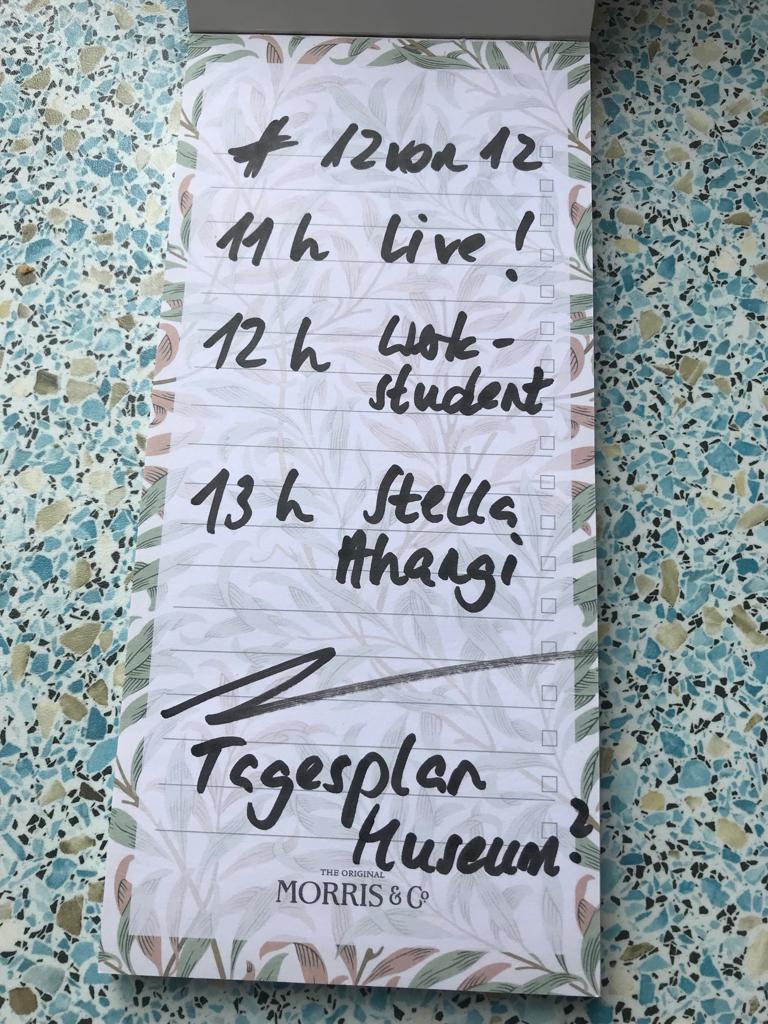 # 12von12
11 h Live!
12 h Wok-
student
13 h Stella
Ahangi
Tagesplan
Museum?
THE ORIGINAL
MORRIS & Co